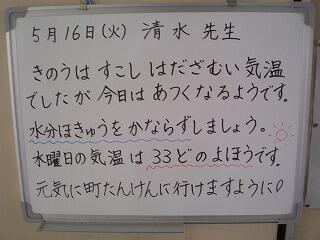 5月16日(火) 清水先生
きのうは すこし はだざむい 気温
でしたが 今日は あつくなるようです。
水分ほきゅうを かならずしましょう。
水曜日の気温は 33どのよほうです。
元気に町たんけんに行けますように♡